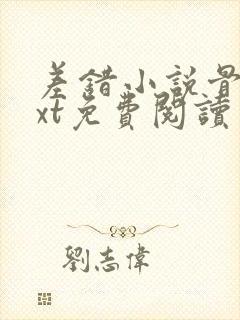 差錯小說骨
xt免費閱讀
劉志偉